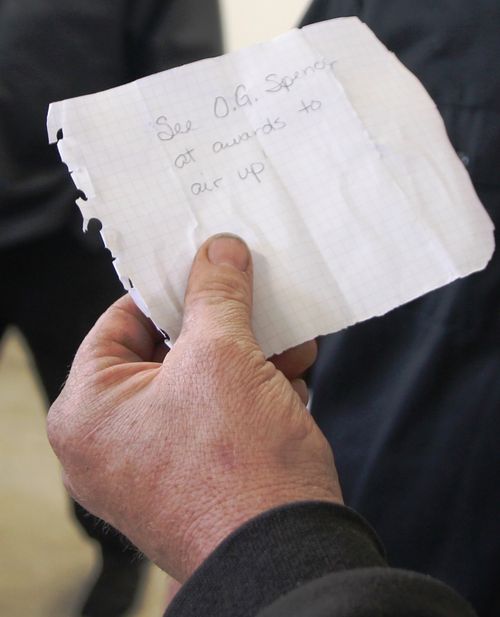 See O.G. Spencer
at awards to
air up